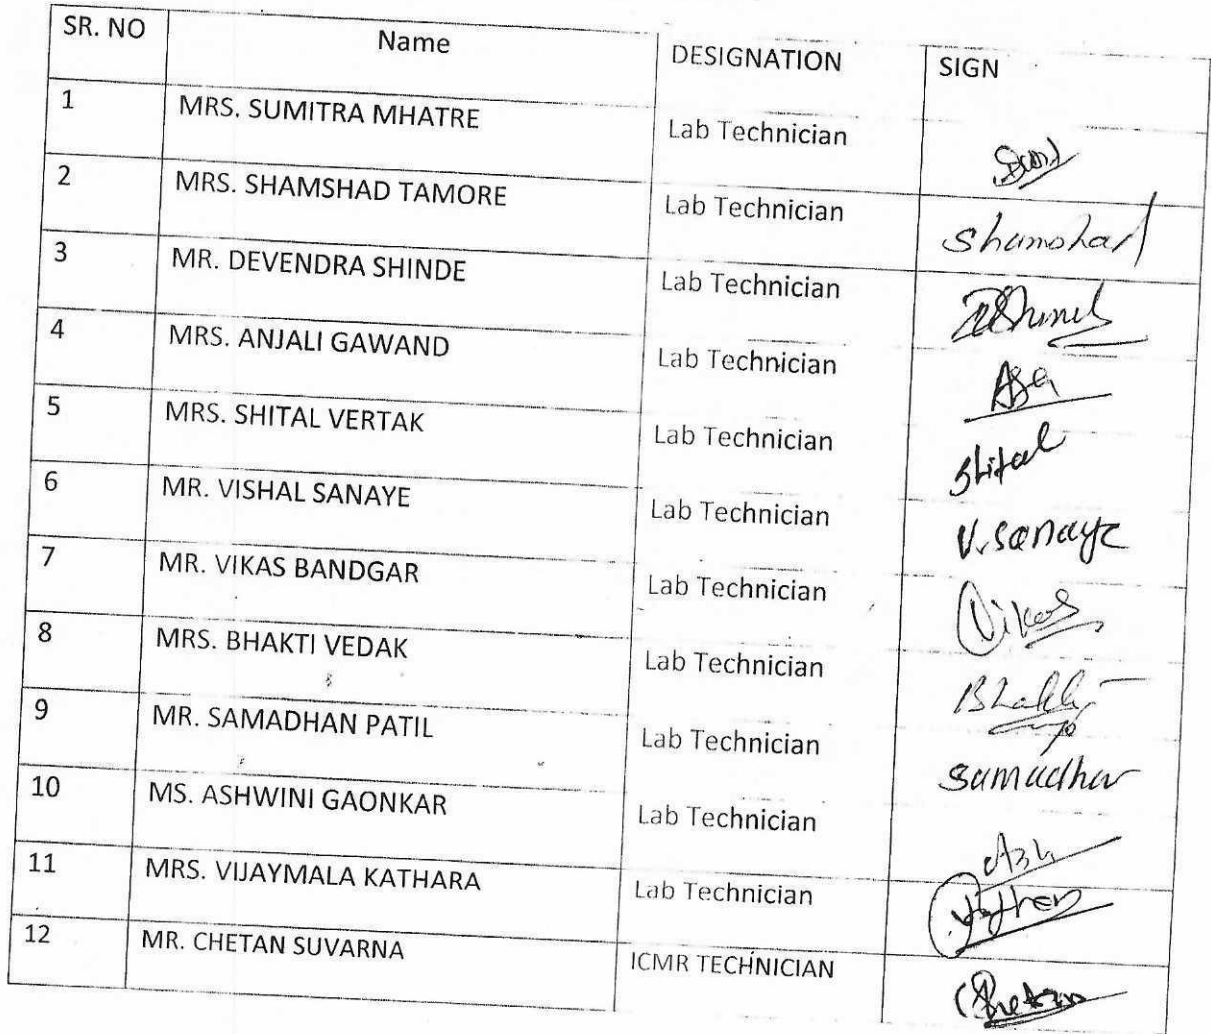 SR. NO Name DESIGNATION SIGN
1 MRS. SUMITRA MHATRE Lab Technician
2 MRS. SHAMSHAD TAMORE Lab Technician Shamshad
3 MR. DEVENDRA SHINDE Lab Technician
4 MRS. ANJALI GAWAND Lab Technician
5 MRS. SHITAL VERTAK Lab Technician Shital
6 MR. VISHAL SANAYE Lab Technician V.Sanaye
7 MR. VIKAS BANDGAR Lab Technician Vikas
8 MRS. BHAKTI VEDAK Lab Technician Bhakti
9 MR. SAMADHAN PATIL Lab Technician Samadhan
10 MS. ASHWINI GAONKAR Lab Technician
11 MRS. VIJAYMALA KATHARA Lab Technician
12 MR. CHETAN SUVARNA ICMR TECHNICIAN Chetan